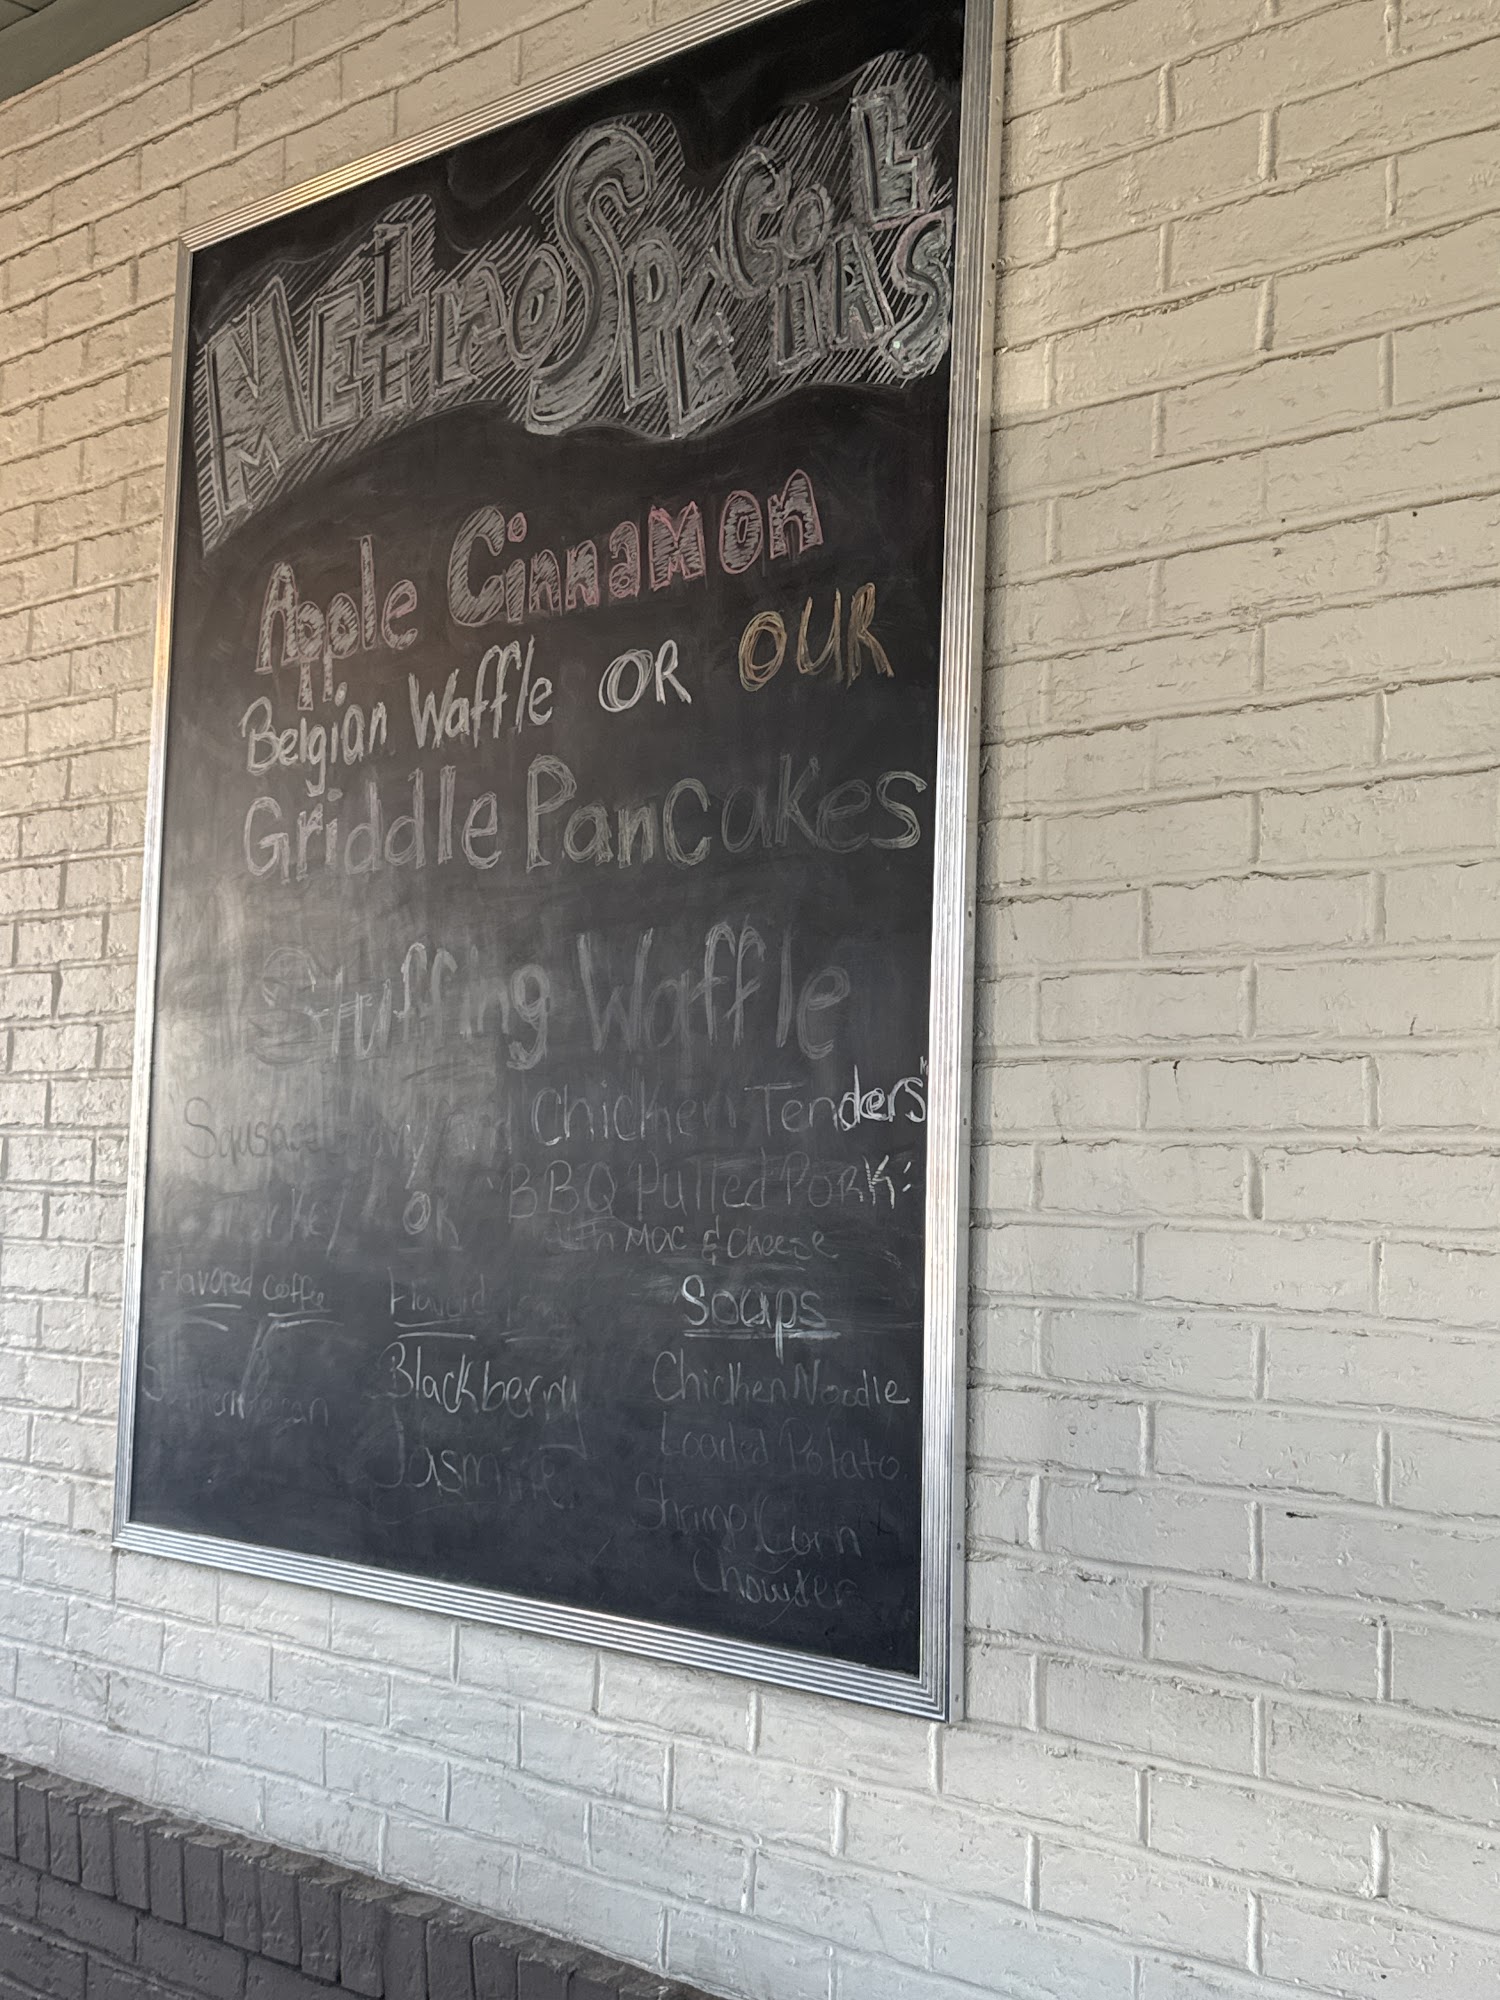 Metro Cole
Specials
Apple Cinnamon
Belgian Waffle OR OUR
Griddle Pancakes
Stuffing Waffle
Sausage Gravy and Chicken Tenders
Turkey OR BBQ Pulled Pork
with Mac & Cheese
Flavored Coffee
Southern Pecan
Flavored
Blackberry
Jasmine
Soups
Chicken Noodle
Loaded Potato
Shrimp Corn
Chowder